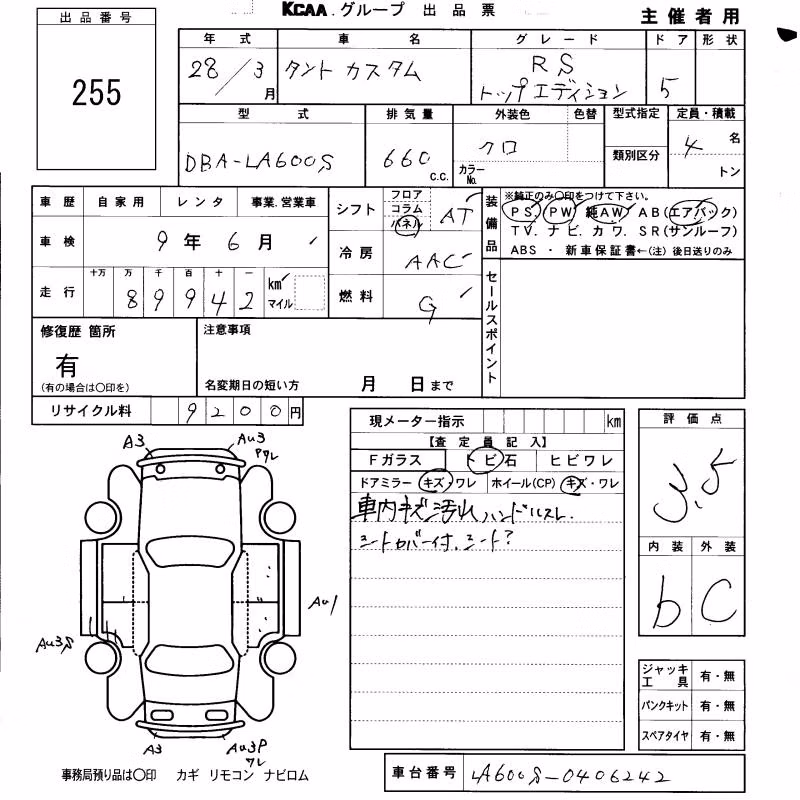 KCAA.グループ 出品票
主催者用
出品番号
255
年式 車名 グレード ドア 形状
28/3月 タント カスタム RS トップエディション 5
型式 排気量 外装色 色替 型式指定 定員・積載
DBA-LA600S 660 c.c. クロ カラーNo. 類別区分 4名 トン
車歴 自家用 レンタ 事業.営業車
車検 9年6月
走行 十万 万 千 百 十 一
89942 km マイル
シフト フロア コラム パネル AT
冷房 AAC
燃料 G
装備品
※純正のみ〇印をつけて下さい。
PS. PW 純AW AB(エアバック)
TV. ナビ. カワ. SR(サンルーフ)
ABS ・ 新車保証書←(注) 後日送りのみ
セールスポイント
修復歴 箇所
有
(有の場合は〇印を)
注意事項
名変期日の短い方 月 日まで
リサイクル料 9200円
現メーター指示 km
【査定員記入】
Fガラス トビ石 ヒビワレ
ドアミラー キズ・ワレ ホイール(CP) キズ・ワレ
車内キズ汚れ ハンドルスレ.
シートカバー付.シート?
評価点
3.5
内装 外装
b C
A3
Au3
Pワレ
Au1
Au3S
A3
Au3P
ワレ
ジャッキ工具 有・無
パンクキット 有・無
スペアタイヤ 有・無
事務局預り品は〇印 カギ リモコン ナビロム
車台番号 LA600S-0406242